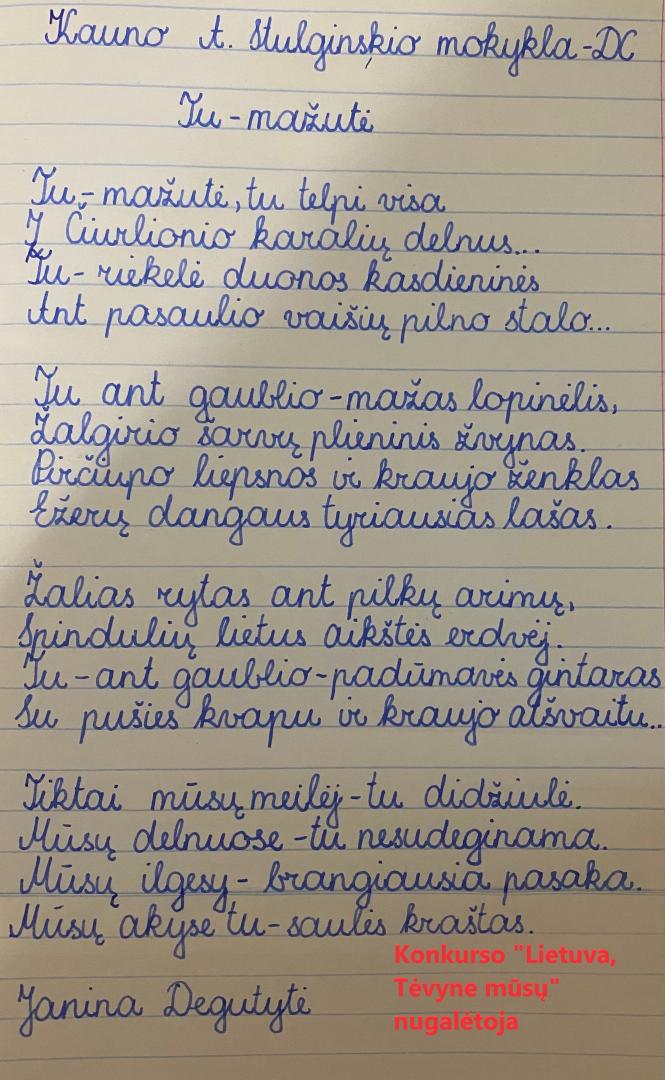 Kauno A. Stulginskio mokykla-DC
Tu-mažutė
Tu,-mažutė, tu telpi visa
Į Čiurlionio karalių delnus...
Tu- riekelė duonos kasdieninės
Ant pasaulio vaišių pilno stalo...
Tu ant gaublio-mažas lopinėlis,
Žalgirio šarvų plieninis žvynas.
Pirčiupo liepsnos ir kraujo ženklas
Ežerų dangaus tyriausias lašas.
Žalias rytas ant pilkų arimų,
Spindulių lietus aikštės erdvėj.
Tu-ant gaublio-padūmavęs gintaras
Su pušies kvapu ir kraujo atšvaitu...
Tiktai mūsų meilėj-tu didžiulė.
Mūsų delnuose-tu nesudeginama.
Mūsų ilgesy- brangiausia pasaka.
Mūsų akyse tu-saulės kraštas.
Janina Degutytė
Konkurso "Lietuva,
Tėvyne mūsų"
nugalėtoja